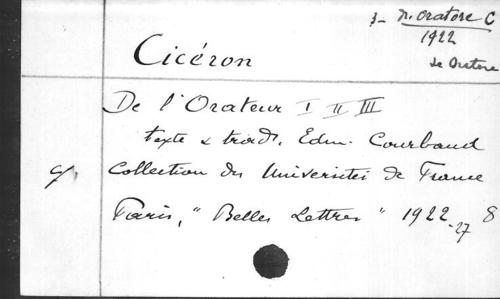 3- De Oratore C
1922
de Oratore
Cicéron
De l'Orateur I II III
texte & trad. Edm. Courbaud
Collection des Universités de France
Paris, "Belles Lettres" 1922-27 8